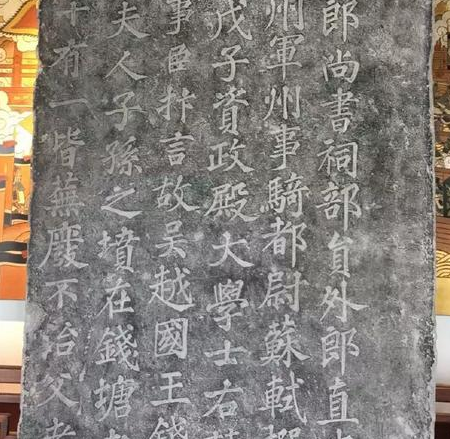 郎尚書祠部員外郎直
州軍州事騎都尉蘇軾撰
戊子資政殿大學士右
事臣抃言故吳越國王錢
夫人子孫之墳在錢塘
有一皆蕪廢不治父老